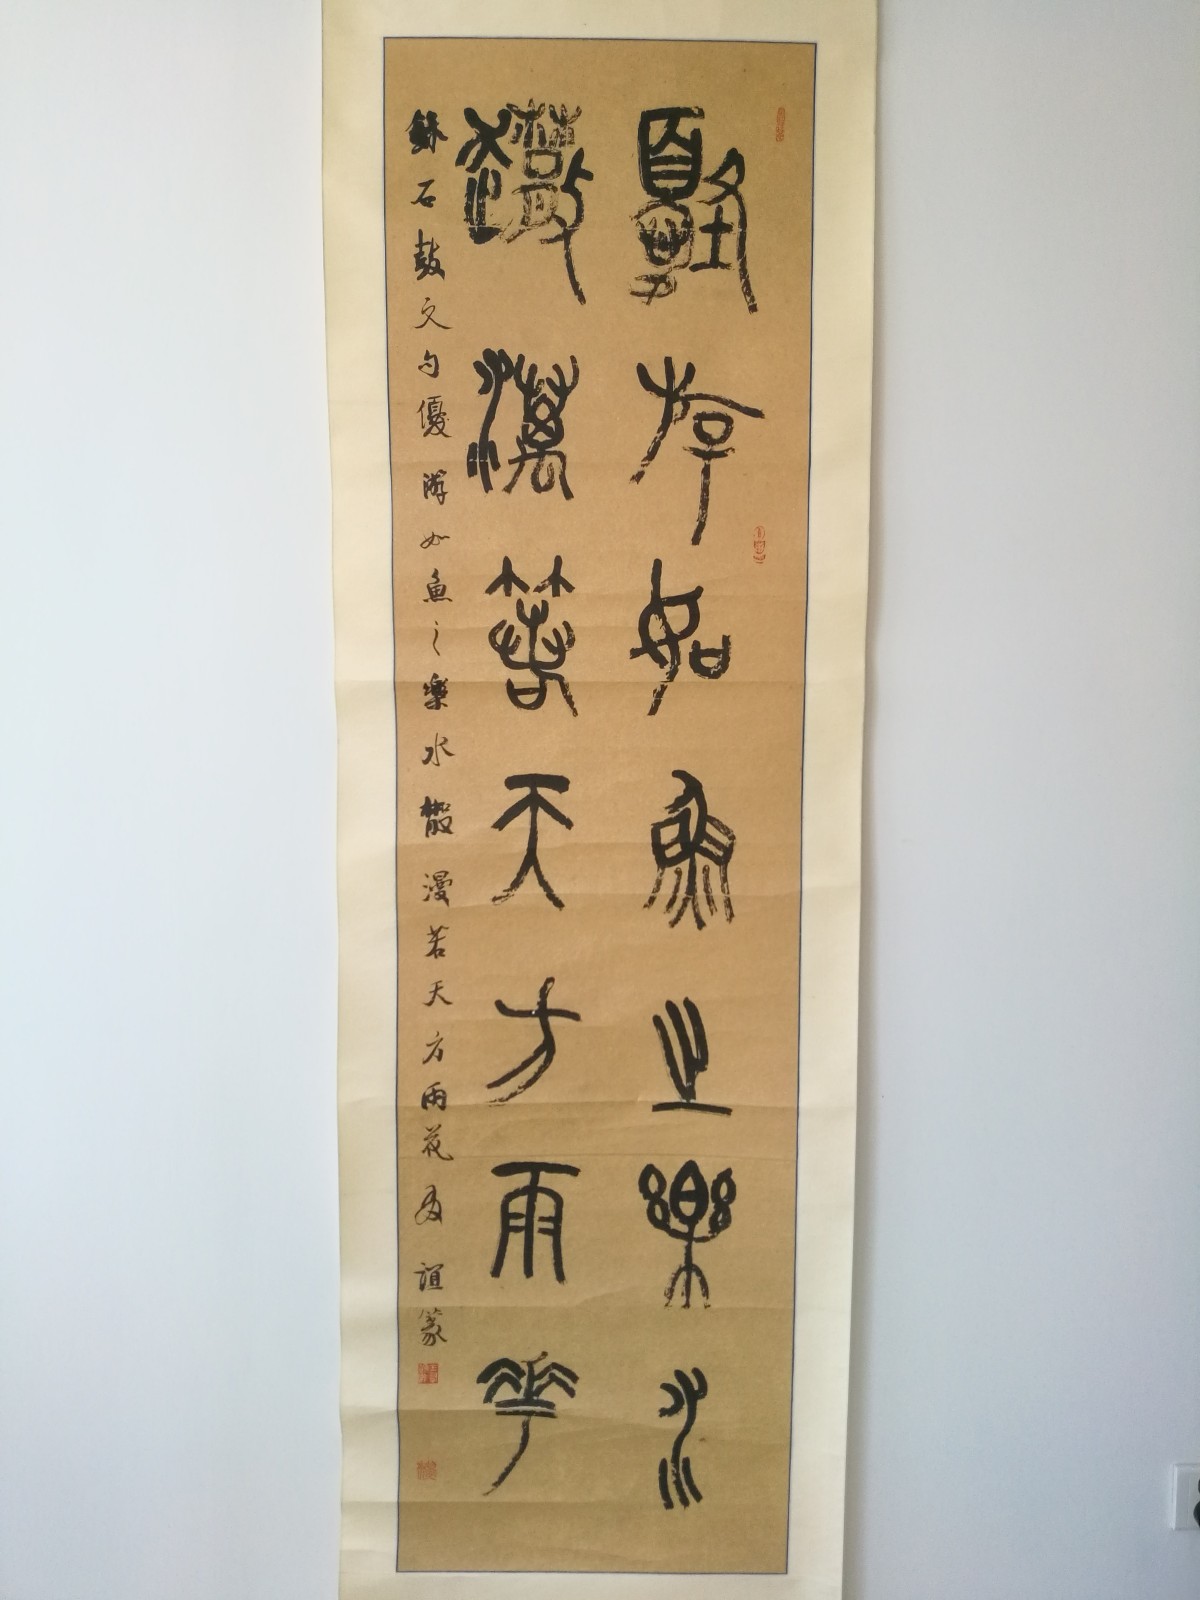 優游如魚之樂水
散漫若天方雨花
石鼓文句優游如魚之樂水散漫若天方雨花 誼篆